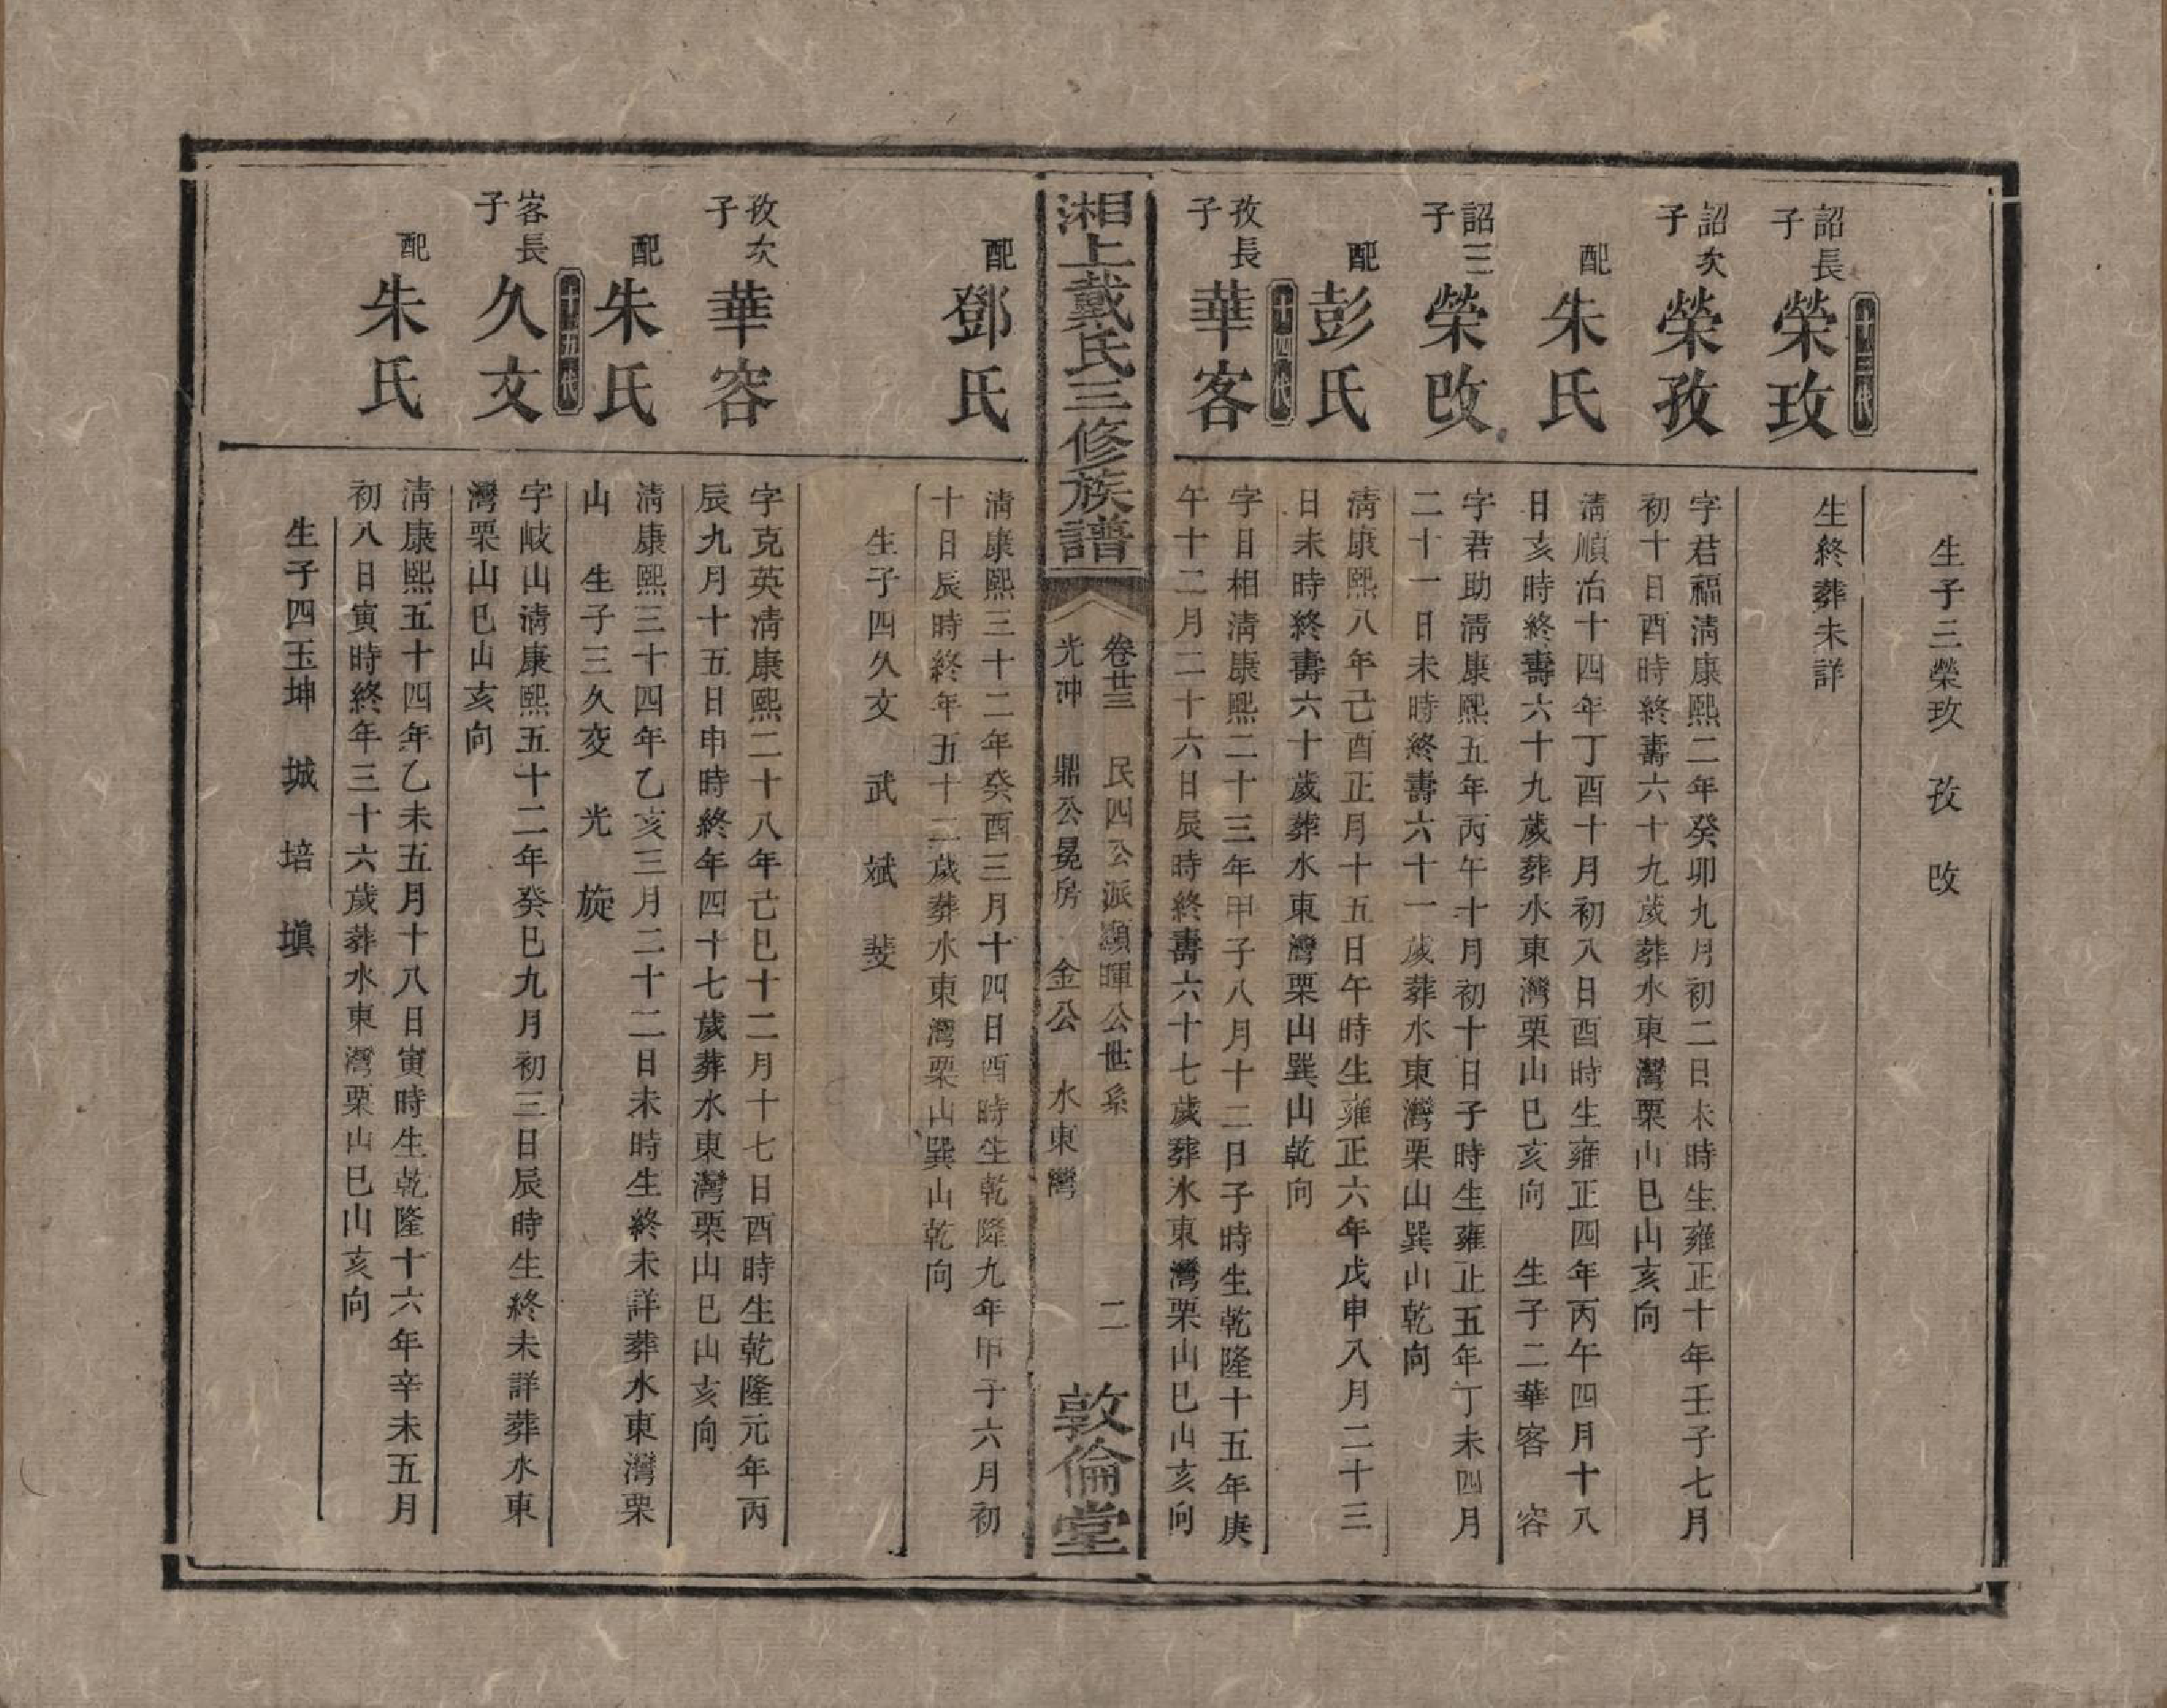 生子三榮玫　孜　改
十三代
詔長子
榮玫
生終葬未詳
詔次子
榮孜
字君福清康熙二年癸卯九月初二日未時生雍正十年壬子七月
初十日酉時終壽六十九歲葬水東灣栗山巳山亥向
配
朱氏
清順治十四年丁酉十月初八日酉時生雍正四年丙午四月十八
日亥時終壽六十九歲葬水東灣栗山巳亥向　生子二華客　容
詔三子
榮改
字君助清康熙五年丙午十月初十日子時生雍正五年丁未四月
二十一日未時終壽六十一歲葬水東灣栗山巽山乾向
配
彭氏
清康熙八年己酉正月十五日午時生雍正六年戊申八月二十三
日未時終壽六十歲葬水東灣栗山巽山乾向
十四代
孜長子
華客
字日相清康熙二十三年甲子八月十二日子時生乾隆十五年庚
午十二月二十六日辰時終壽六十七歲葬水東灣栗山巳山亥向
湘上戴氏三修族譜
卷廿三　民四公派顯暉公世系
光沖　鼎公晃房　金公　水東灣
二
敦倫堂
配
鄧氏
清康熙三十二年癸酉三月十四日酉時生乾隆九年甲子六月初
十日辰時終年五十二歲葬水東灣栗山巽山乾向
生子四久文　武　斌　斐
孜次子
華容
字克英清康熙二十八年己巳十二月十七日酉時生乾隆元年丙
辰九月十五日申時終年四十七歲葬水東灣栗山巳山亥向
配
朱氏
清康熙三十四年乙亥三月二十二日未時生終未詳葬水東灣栗
山　生子三久変　光　旋
十五代
客長子
久文
字岐山清康熙五十二年癸巳九月初三日辰時生終未詳葬水東
灣栗山巳山亥向
配
朱氏
清康熙五十四年乙未五月十八日寅時生乾隆十六年辛未五月
初八日寅時終年三十六歲葬水東灣栗山巳山亥向
生子四玉坤　城　培　塡